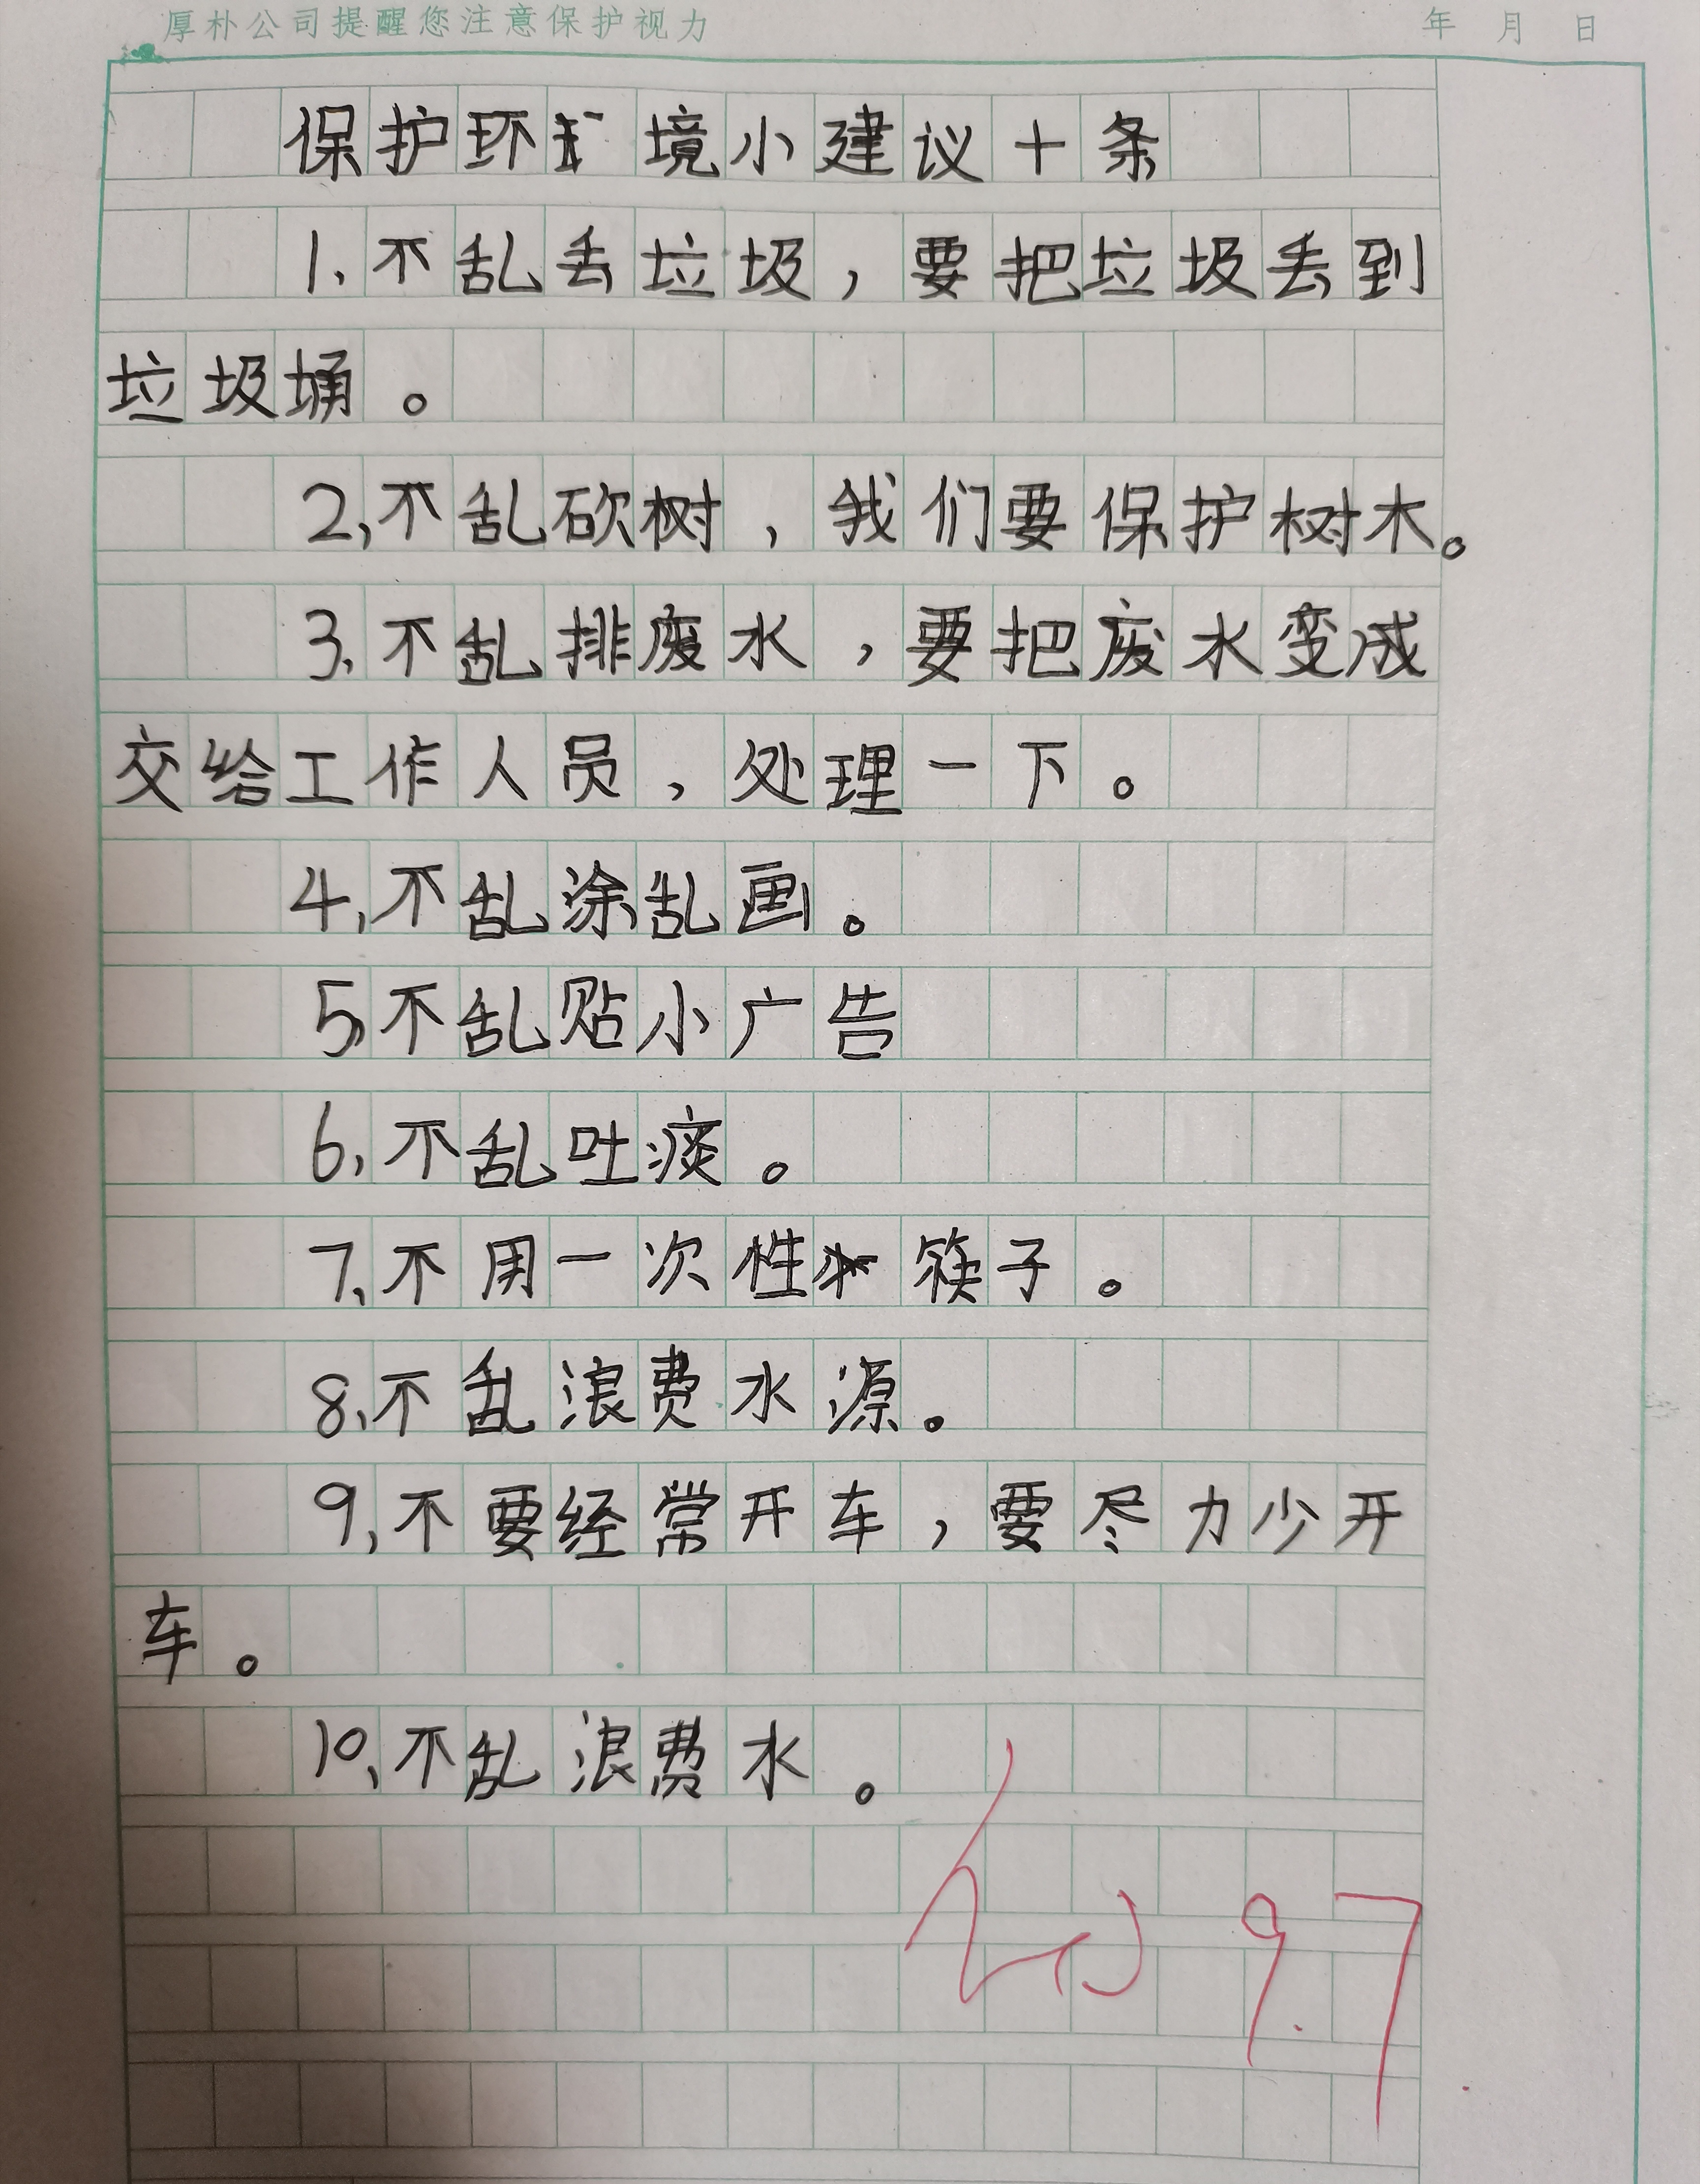 厚朴公司提醒您注意保护视力 年 月 日
保护环境小建议十条
1、不乱丢垃圾，要把垃圾丢到
垃圾埇。
2、不乱砍树，我们要保护树木。
3、不乱排废水，要把废水变成
交给工作人员，处理一下。
4、不乱涂乱画。
5、不乱贴小广告
6、不乱吐痰。
7、不用一次性筷子。
8、不乱浪费水源。
9、不要经常开车，要尽力少开
车。
10、不乱浪费水。
9.7